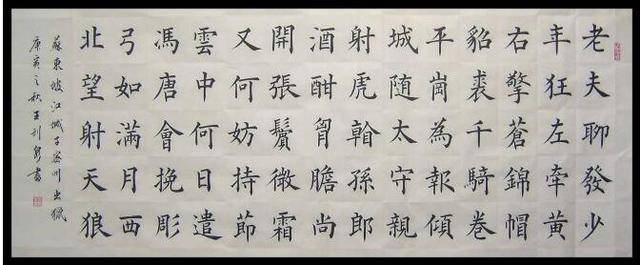 老夫聊發少
年狂左牽黃
右擎蒼錦帽
貂裘千騎卷
平崗為報傾
城随太守親
射虎看孫郎
酒酣胷膽尚
開張鬢微霜
又何妨持節
雲中何日遣
馮唐會挽彫
弓如滿月西
北望射天狼
蘇東坡江城子密州出獵
庚寅之秋王利書